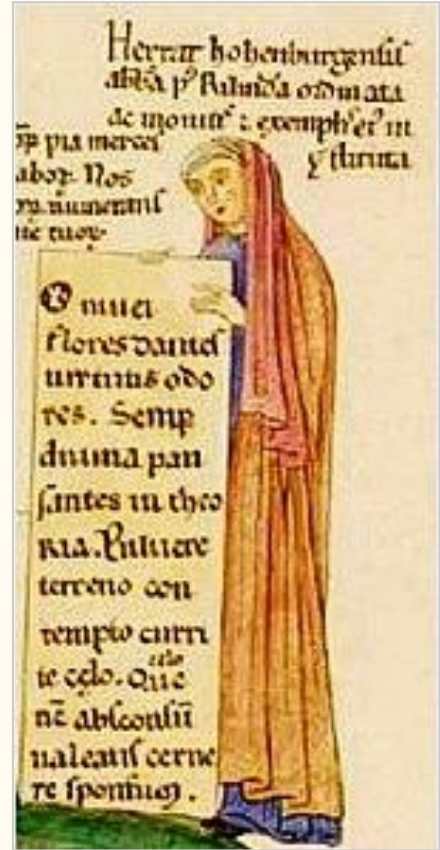 Herrat hohenburgensis
abba p⁹ Rilinda ordinata
ac monitis ⁊ exemplis ei⁹ in
stituta
pia merces
labor. Nos
numerans
O niuei
flores dantes
uirtutis odo
res. Semp
diuina pau
santes in theo
ria. Puluere
terreno con
tempto curri
te celo. Que
celo
nc absconsu
ualeatis cerne
re sponsum.